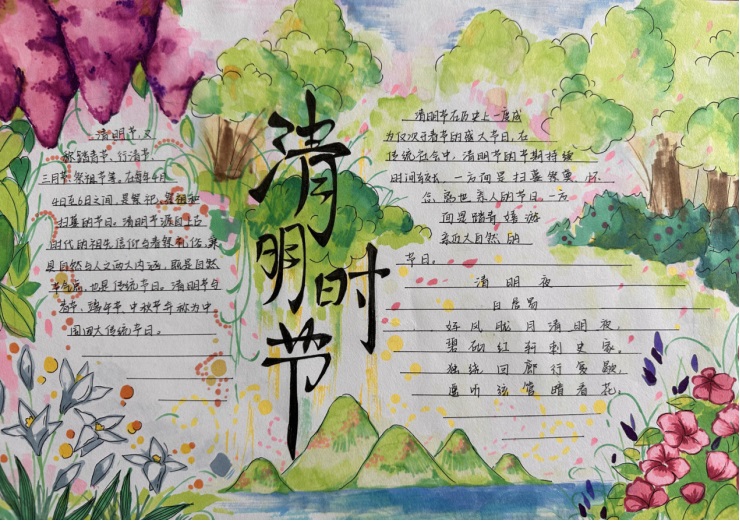 清明时节
清明节,又
称踏青节、行清节、
三月节、祭祖节等。在每年4月
4日至6日之间,是祭祀、祭祖和
扫墓的节日。清明节源自上古
时代的祖先信仰与春祭礼俗,兼
具自然与人文两大内涵,既是自然
节气点,也是传统节日。清明节与
春节、端午节、中秋节并称为中
国四大传统节日。
清明节在历史上一度成
为仅次于春节的盛大节日,在
传统社会中,清明节的节期持续
时间较长,一方面是扫墓祭奠、怀
念离世亲人的节日。一方
面是踏青嬉游
亲近大自然的
节日。
清明夜
白居易
好风胧月清明夜,
碧砌红轩刺史家。
独绕回廊行复歇,
遥听弦管暗看花